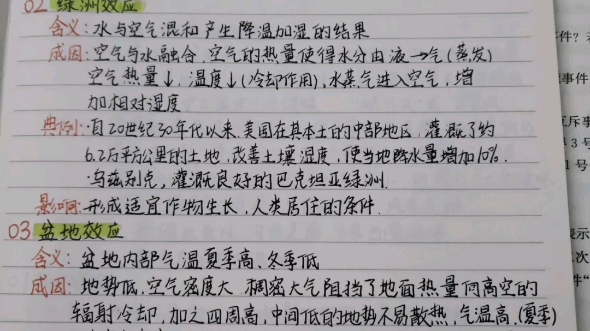 02 绿洲效应
含义:水与空气混和产生降温加湿的结果
成因:空气与水融合,空气的热量使得水分由液→气(蒸发)
空气热量↓,温度↓(冷却作用),水蒸气进入空气,增
加相对湿度
典例:·自20世纪30年代以来,美国在其本土的中部地区,灌溉了约
6.2万平方公里的土地,改善土壤湿度,使当地降水量增加10%.
·乌兹别克,灌溉良好的巴克坦亚绿洲.
影响:形成适宜作物生长,人类居住的条件.
03 盆地效应
含义:盆地内部气温夏季高,冬季低
成因:地势低,空气密度大,稠密大气阻挡了地面热量向高空的
辐射冷却,加之四周高,中间低的地势不易散热,气温高.(夏季)
件?
事件
斥事
3号
1号
示
次
件"